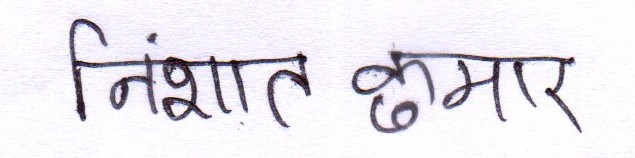 निंशात कुमार